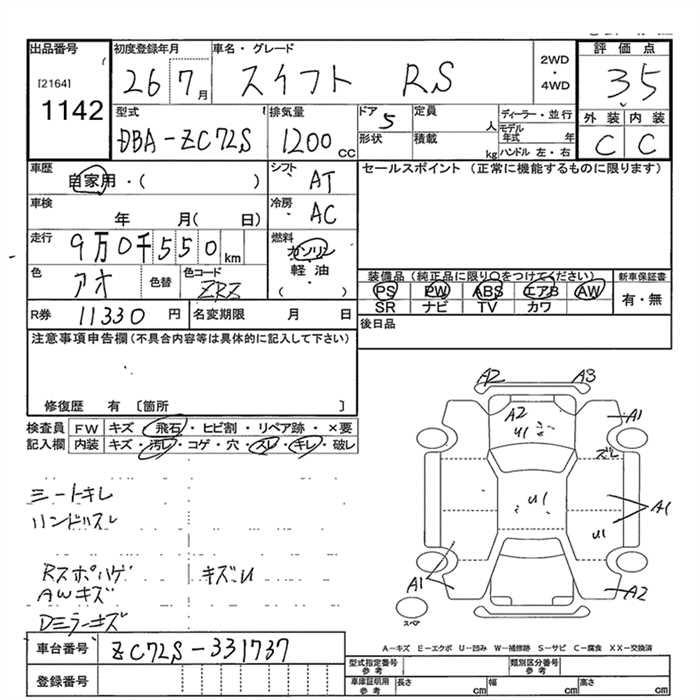 出品番号
[2164]
1142
初度登録年月
26 7月
車名・グレード
スイフト RS
2WD
・
4WD
評価点
3.5
外装 内装
C C
型式
DBA-ZC72S
排気量
1200 CC
ドア
5
形状
定員
人
積載
kg
ディーラー・並行
モデル年式 年
ハンドル 左・右
車歴
自家用・( )
シフト
AT
セールスポイント (正常に機能するものに限ります)
車検
年 月( 日)
冷房
AC
走行
9万0千550km
燃料
ガソリン
軽油
・( )
色
アオ
色替
色コード
ZRZ
装備品(純正品に限り○をつけてください)
PS PW ABS エアB AW
SR ナビ TV カワ
新車保証書
有・無
R券 11330 円
名変期限 月 日
後日品
注意事項申告欄(不具合内容等は具体的に記入して下さい)
修復歴 有 〔箇所 〕
検査員記入欄
FW キズ・飛石・ヒビ割・リペア跡・×要
内装 キズ・汚レ・コゲ・穴・スレ・キレ・破レ
シートキレ
ハンドルスレ
Rスポハゲ キズU
AWキズ
Dミラーキズ
A2 A3
A2
U1
A1
ズレ
U1
A1
U1
A1
A2
スペア
A-キズ E-エクボ U-凹み W-補修跡 S-サビ C-腐食 XX-交換済
車台番号 ZC72S-331737
登録番号
型式指定番号
参考
類別区分番号
参考
車庫証明用
参考
長さ cm
幅 cm
高さ cm